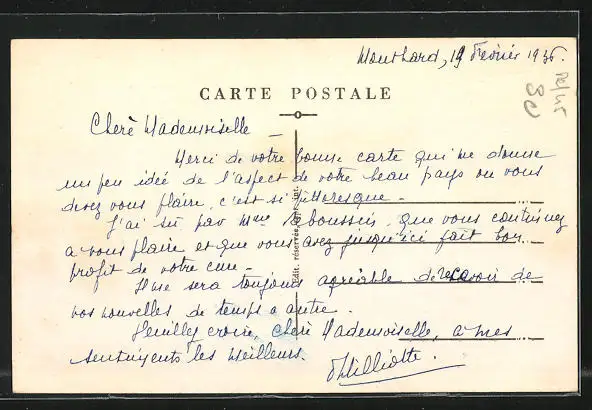 Montbard, 19 Février 1936.
CARTE POSTALE
Chère Mademoiselle —
Merci de votre bonne carte qui me donne
un peu idée de l'aspect de votre beau pays ou vous
devez vous plaire, c'est si pittoresque —
J'ai su par Mme que vous continuez
a vous plaire et que vous avez jusqu'ici fait bon
profit de votre cure —
Il me sera toujours agréable de recevoir de
vos nouvelles de temps a autre.
Veuillez croire, Chère Mademoiselle, a mes
sentiments les meilleurs.
Edit. réservée